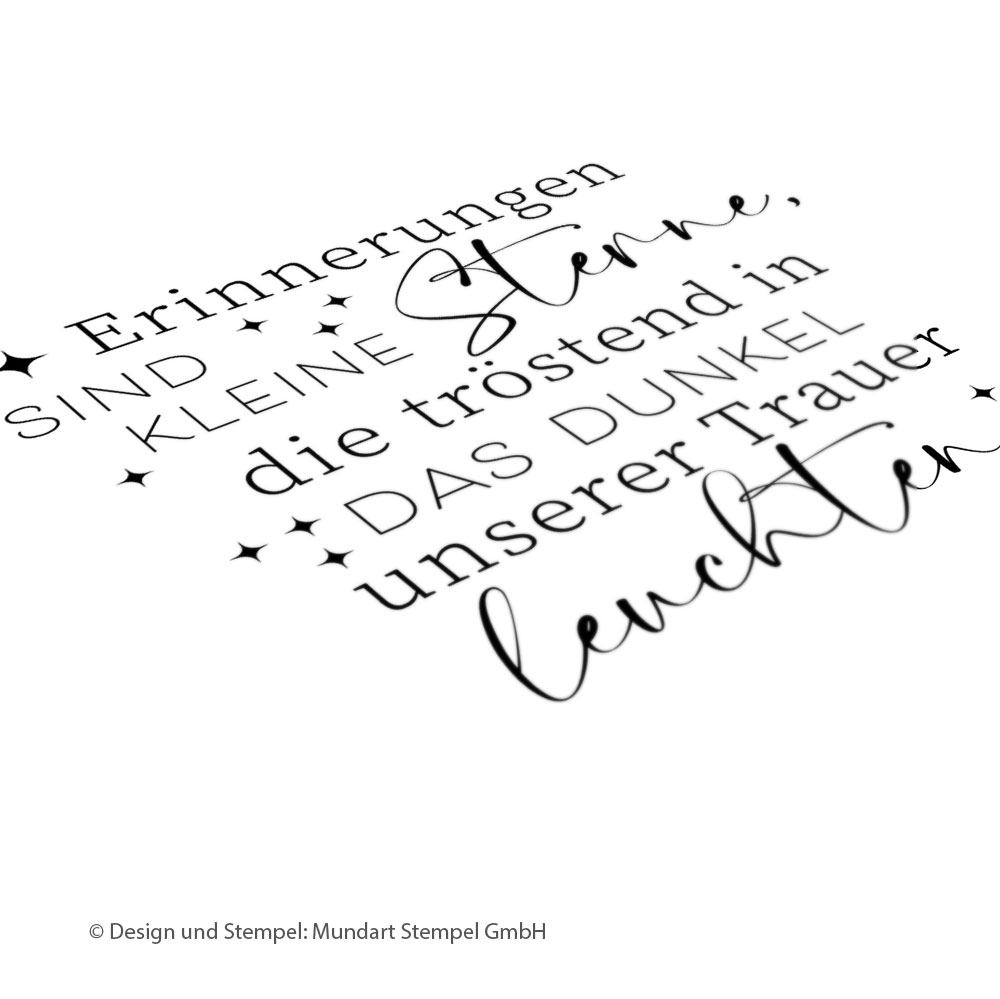 Erinnerungen
SIND
KLEINE Sterne,
die tröstend in
DAS DUNKEL
unserer Trauer
leuchten
© Design und Stempel: Mundart Stempel GmbH